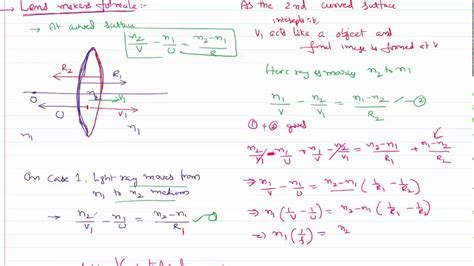 Lens makers formula:-
→ At curved surface
n2/V - n1/U = n2-n1/R
R2 R1
O n2 V1
U V1
n1 n1
On Case 1, Light ray moves from
n1 to n2 medium
⇒ n2/V1 - n1/U = n2-n1/R1 —①
As the 2nd curved surface
intercepts it,
V1 acts like a object and
final image is formed at V
Here ray is moves n2 to n1
n1/V - n2/V1 = n1-n2/R2 —②
①+② gives
n2/V1 - n1/U + n1/V - n2/V1 = n2-n1/R1 + n1-n2/R2
⇒ n1/V - n1/U = n2-n1 (1/R1 - 1/R2)
⇒ n1 (1/V - 1/U) = n2-n1 (1/R1 - 1/R2)
⇒ n1 (1/f) = n2